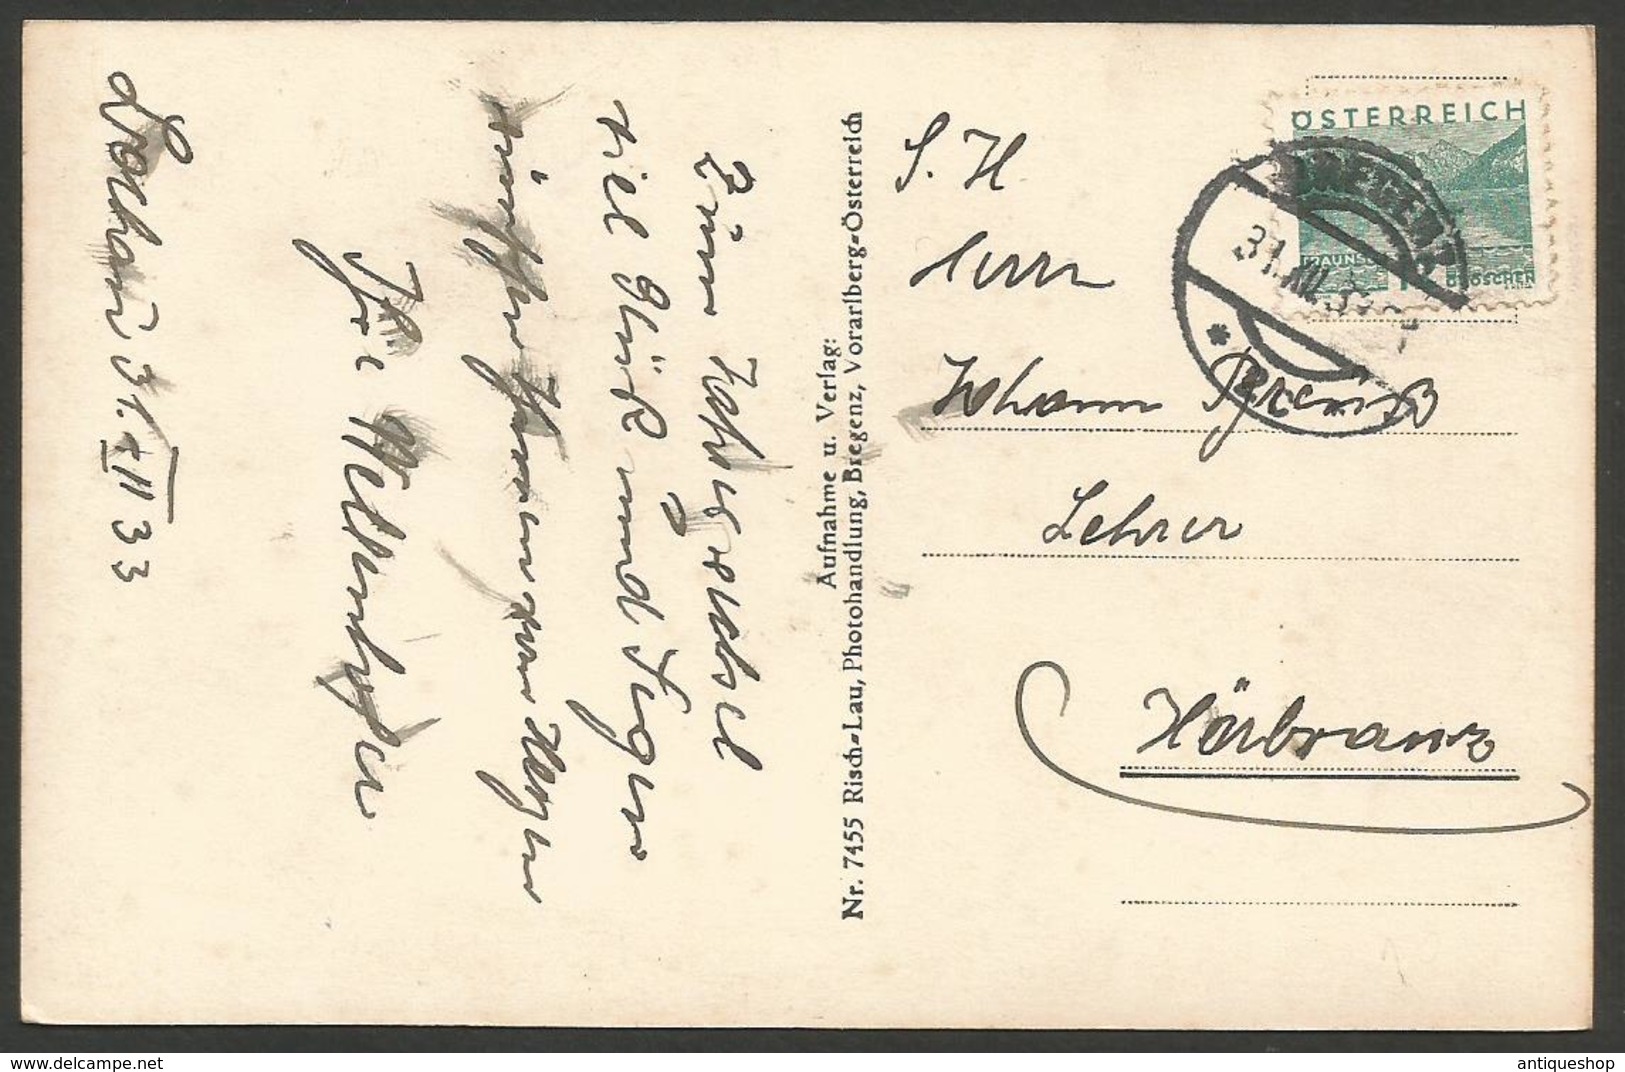 Lochau 31. XII 33
Zum Jahreswechsel
viel Glück und Segen
wünschen Ihnen von Herzen
Ihre
Nr. 7455 Risch=Lau, Photohandlung, Bregenz, Vorarlberg=Österreich
Aufnahme u. Verlag:
S. H
Herrn
Johann
Lehrer
Hörbranz
ÖSTERREICH
TRAUNSEE
GROSCHEN
BREGENZ
31.XII.33
delcampe.net
antiqueshop